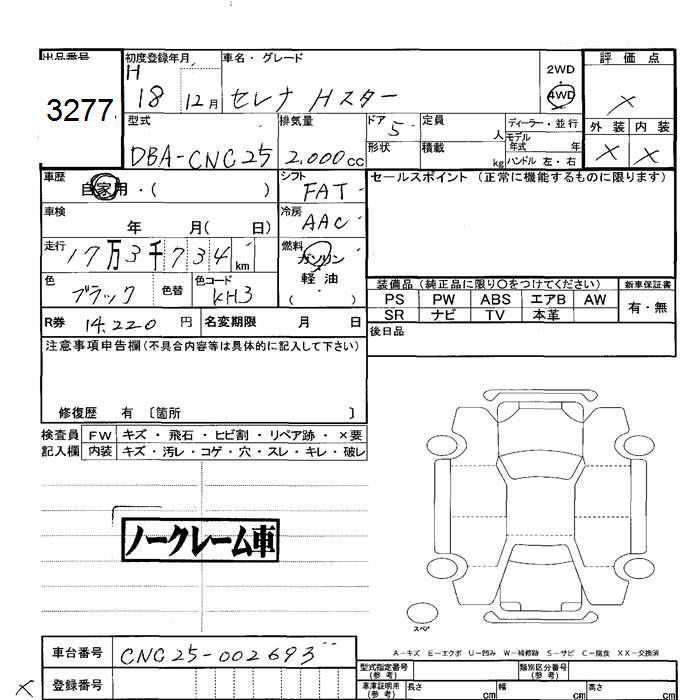 出品番号 初度登録年月 車名・グレード 2WD 評価点
3277 H 18 12月 セレナ Hスター 4WD ×
型式 排気量 ドア 5 定員 人 ディーラー・並行 外装 内装
モデル年式 年
DBA-CNC25 2.000cc 形状 積載 kg ハンドル 左・右 × ×
車歴 シフト セールスポイント (正常に機能するものに限ります)
自家用・( ) FAT
車検 冷房
年 月( 日) AAC
走行 17万3千734km 燃料 ガソリン
軽油
( )
色 ブラック 色替 色コード KH3
装備品 (純正品に限り〇をつけてください) 新車保証書
PS PW ABS エアB AW 有・無
SR ナビ TV 本革
R券 14.220 円 名変期限 月 日
後日品
注意事項申告欄(不具合内容等は具体的に記入して下さい)
修復歴 有 〔箇所 〕
検査員 FW キズ・飛石・ヒビ割・リペア跡・×要
記入欄 内装 キズ・汚レ・コゲ・穴・スレ・キレ・破レ
ノークレーム車
スペア
A-キズ E-エクボ U-凹み W-補修跡 S-サビ C-腐食 XX-交換済
車台番号 CNC25-002693
型式指定番号(参考) 類別区分番号(参考)
× 登録番号
車庫証明用(参考) 長さ cm 幅 cm 高さ cm